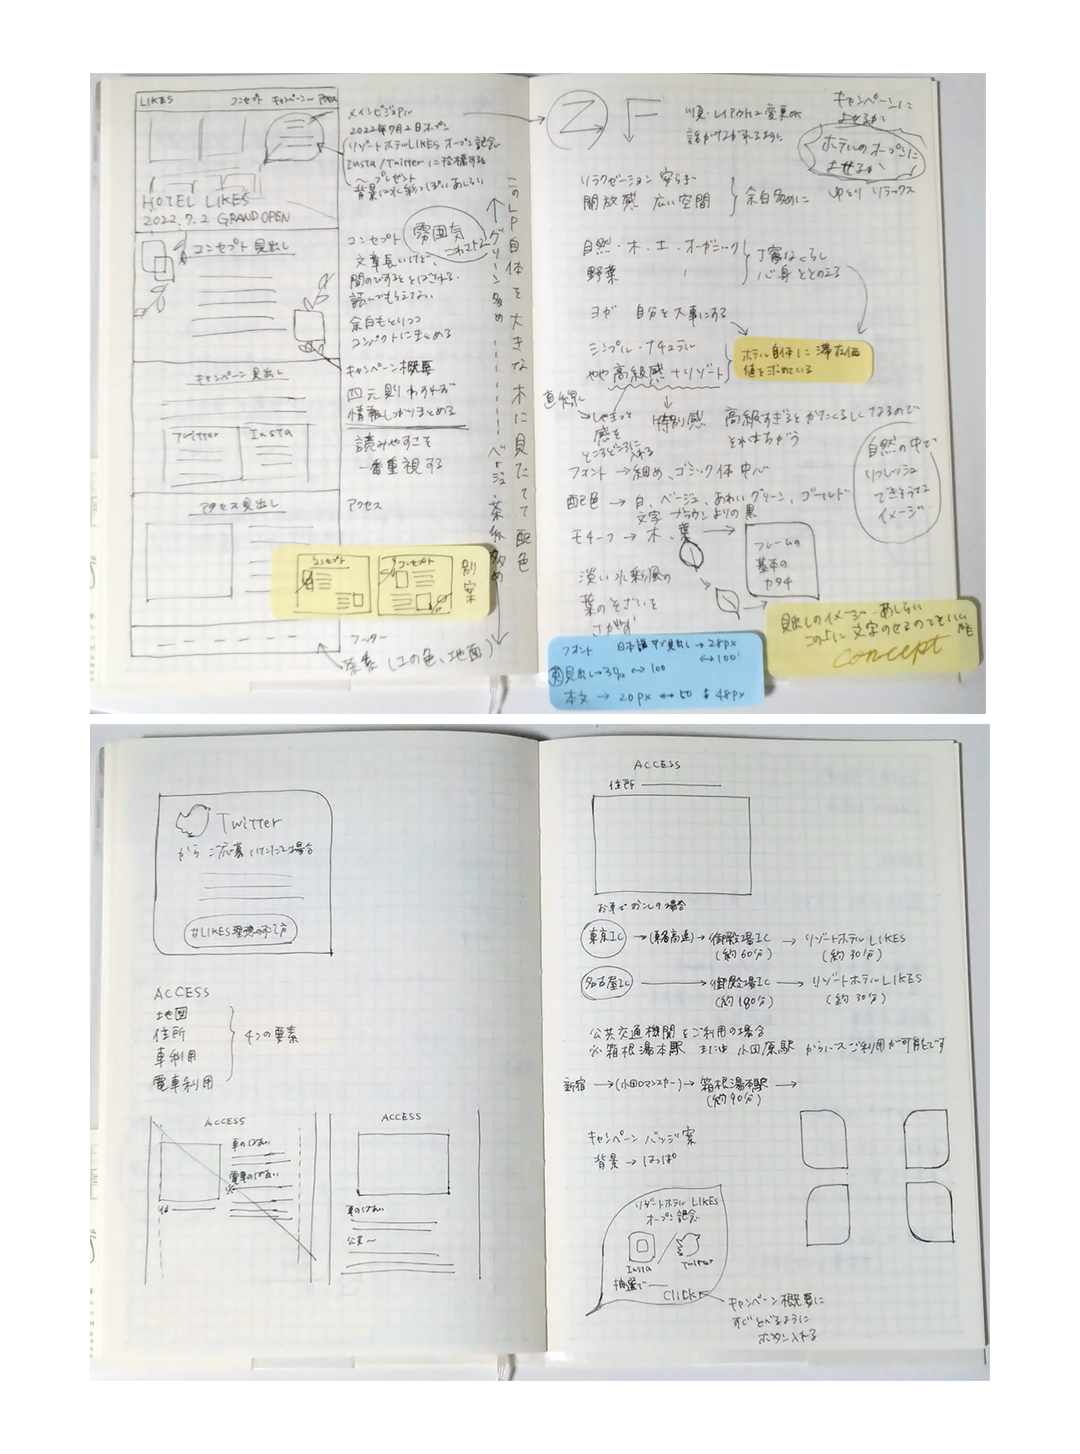 LIKES
コンセプト キャンペーン アクセス
HOTEL LIKES
2022.7.2 GRAND OPEN
コンセプト見出し
キャンペーン見出し
Twitter
Insta
アクセス見出し
メインビジュアル
2022年7月2日オープン
リゾートホテルLIKESオープン記念
Insta/Twitterに投稿すると
〜プレゼント
背景に水彩っぽいあしらい
コンセプト
雰囲気
文章長いけど、
読んでもらえない
余白もとりつつ
コンパクトにまとめる
キャンペーン概要
四原則わすれず
情報しっかりまとめる
読みやすさを
一番重視する
アクセス
グリーン多め
ベージュ、茶系多め
このLP自体を大きな木に見たてて配色
コンセプト
コンセプト
別案
フッター
茶系(土の色、地面)
Z F
順・レイアウト
キャンペーンに
よせるか
ホテルのオープンに
よせるか
リラクゼーション 安らぎ
開放感 広い空間
余白多めに
ゆとり リラックス
自然・木・土・オーガニック
野菜
丁寧なくらし
心身ととのえる
ヨガ 自分を大事にする
シンプル・ナチュラル
やや高級感+リゾート
ホテル自体に滞在価
値を求めている
直線
しゃきっと
感を
ところどころに
入れる
特別感
高級すぎるとかたくるしくなるので
それはちがう
自然の中で
リフレッシュ
できそうな
イメージ
フォント→細め、ゴシック体中心
配色→白、ベージュ、あわいグリーン、ゴールド
文字 ブラウンよりの黒
モチーフ→木、葉
フレームの
基本の
カタチ
淡い水彩風の
葉のそざいを
さがす
フォント 日本語サブ見出し→28px
↔100
見出し→ ↔100
本文→20px ↔50 ↕48px
見出しのイメージ・あしらい
このように文字のせるのでもいいかも
concept
Twitter
からご応募いただく場合
#LIKES理想の過ごし方
ACCESS
地図
住所
車利用
電車利用
4つの要素
ACCESS
車のばあい
電車のばあい
ACCESS
車のばあい
公共〜
ACCESS
住所
お車でお越しの場合
東京IC→(東名高速)→御殿場IC→リゾートホテルLIKES
(約60分) (約30分)
名古屋IC→御殿場IC→リゾートホテルLIKES
(約180分) (約30分)
公共交通機関をご利用の場合
※箱根湯本駅 または 小田原駅 からバスご利用が可能です
新宿→(小田ロマンスカー)→箱根湯本駅→
(約90分)
キャンペーン バッジ案
背景→はっぱ
リゾートホテルLIKES
オープン記念
Insta
Twitter
抽選で
Click
キャンペーン概要に
すぐとべるように
ボタン入れる